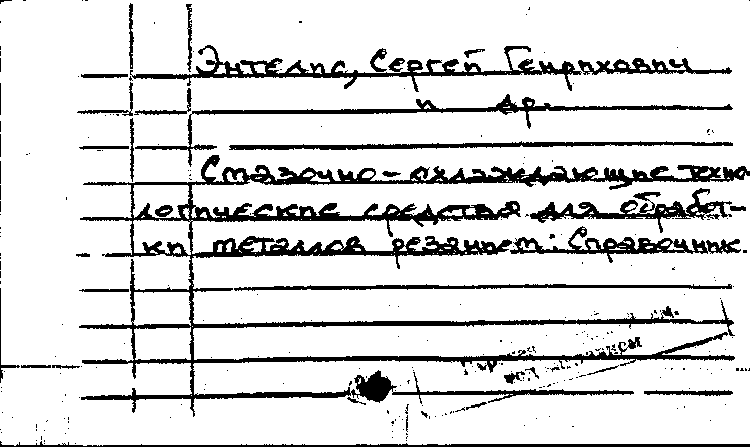 Энтелис, Сергей Генрихович
и др.
Смазочно-охлаждающие техно-
логические средства для обработ-
ки металлов резанием: Справочник